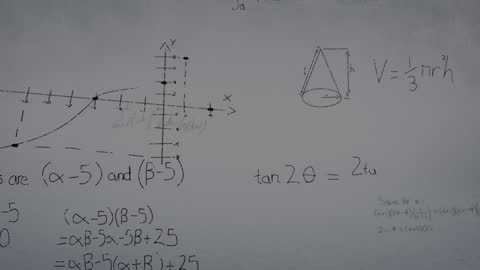 Y
X
h
l
r
V = 1/3 πr²h
s are (α-5) and (β-5)
tan 2θ = 2ta
-5
(α-5)(β-5)
0
=αβ-5α-5β+25
=αβ-5(α+β)+25